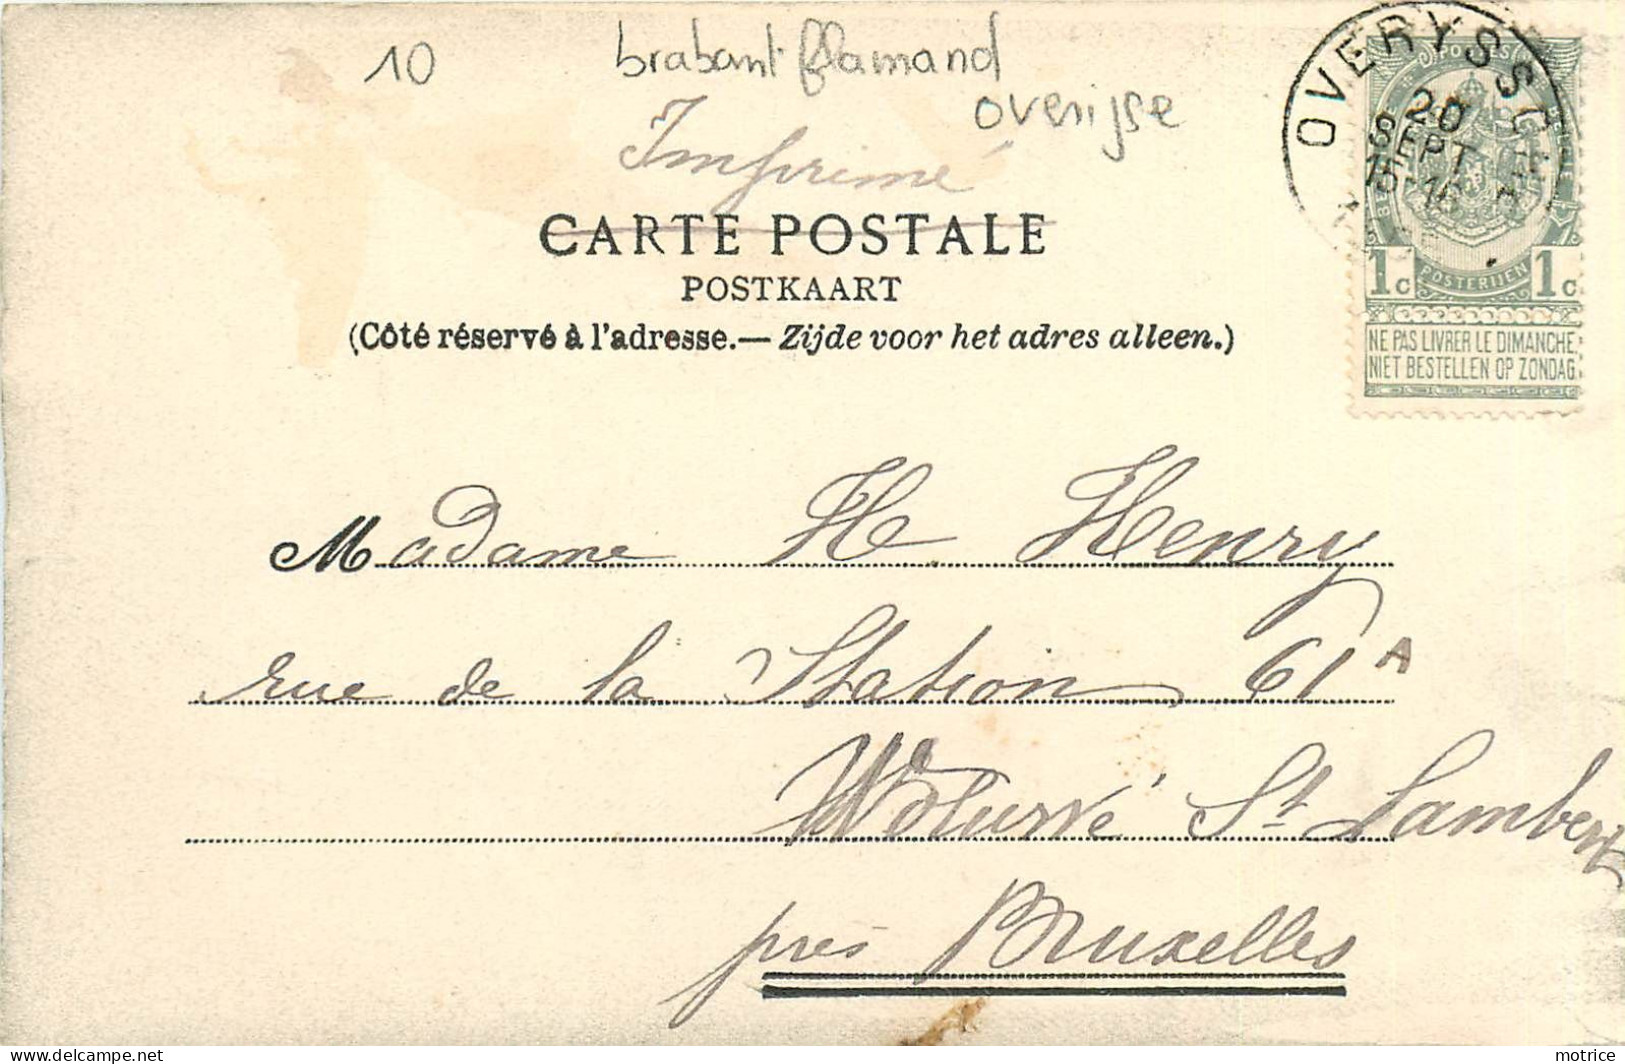 10
brabant flamand
overijse
Imprimé
CARTE POSTALE
POSTKAART
(Côté réservé à l'adresse.— Zijde voor het adres alleen.)
OVERYSSCHE
20
SEPT
POSTES
POSTERIJEN
1c 1c
NE PAS LIVRER LE DIMANCHE
NIET BESTELLEN OP ZONDAG
Madame H. Henry
rue de la Station 61A
Woluwé St Lambert
près Bruxelles
delcampe.net
motrice